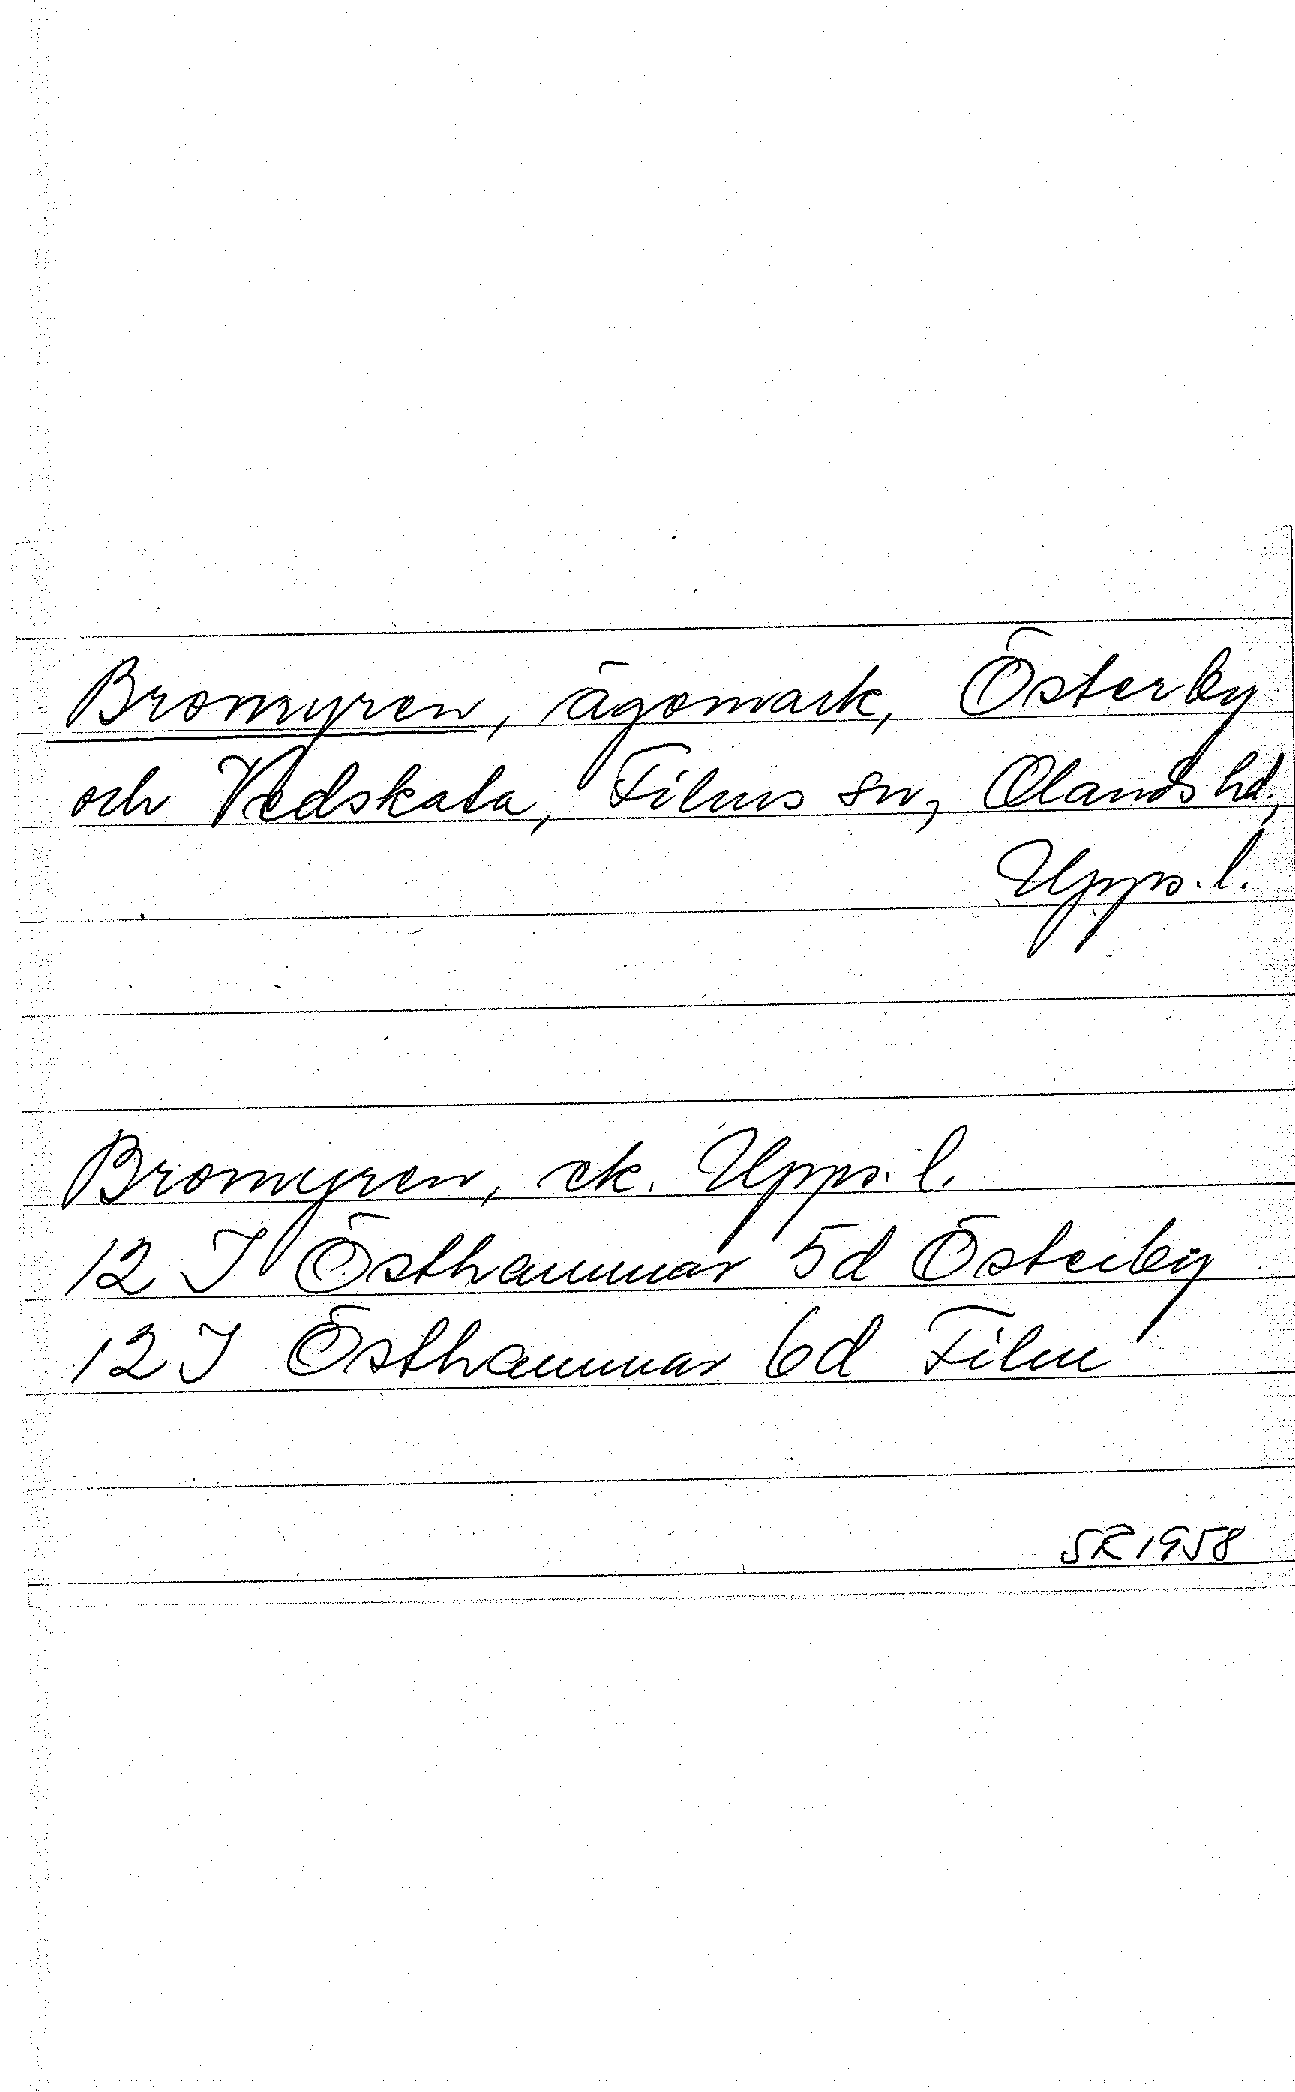 Bromyren, ägomark, Österby
och Vedskata, Films sn, Olands hd,
Upps. l.
Bromyren, ek. Upps. l.
12 I Östhammar 5d Österby
12 I Östhammar 6d Film
SR 1958